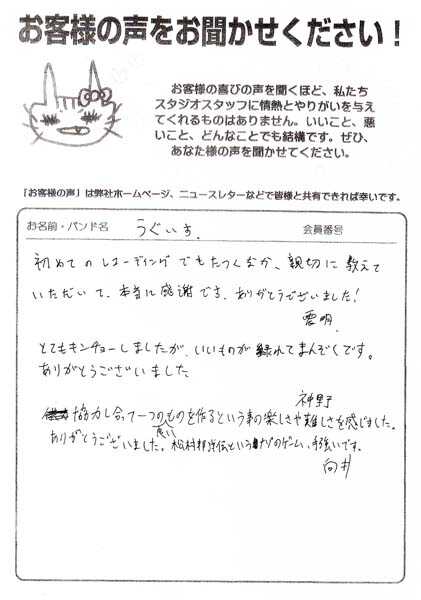 お客様の声をお聞かせください！
お客様の喜びの声を聞くほど、私たち
スタジオスタッフに情熱とやりがいを与え
てくれるものはありません。いいこと、悪
いこと、どんなことでも結構です。ぜひ、
あなた様の声を聞かせてください。
「お客様の声」は弊社ホームページ、ニュースレターなどで皆様と共有できれば幸いです。
お名前・バンド名 うぐいす． 会員番号
初めてのレコーディングでもたつくなか、親切に教えて
いただいて、本当に感謝です。ありがとうございました！
とてもキンチョーしましたが、いいものが録れてまんぞくです。
ありがとうございました
神野
協力し合って一つのものを作るという事の楽しさや難しさを感じました。
ありがとうございました。松村邦洋伝という のゲーム、
向井